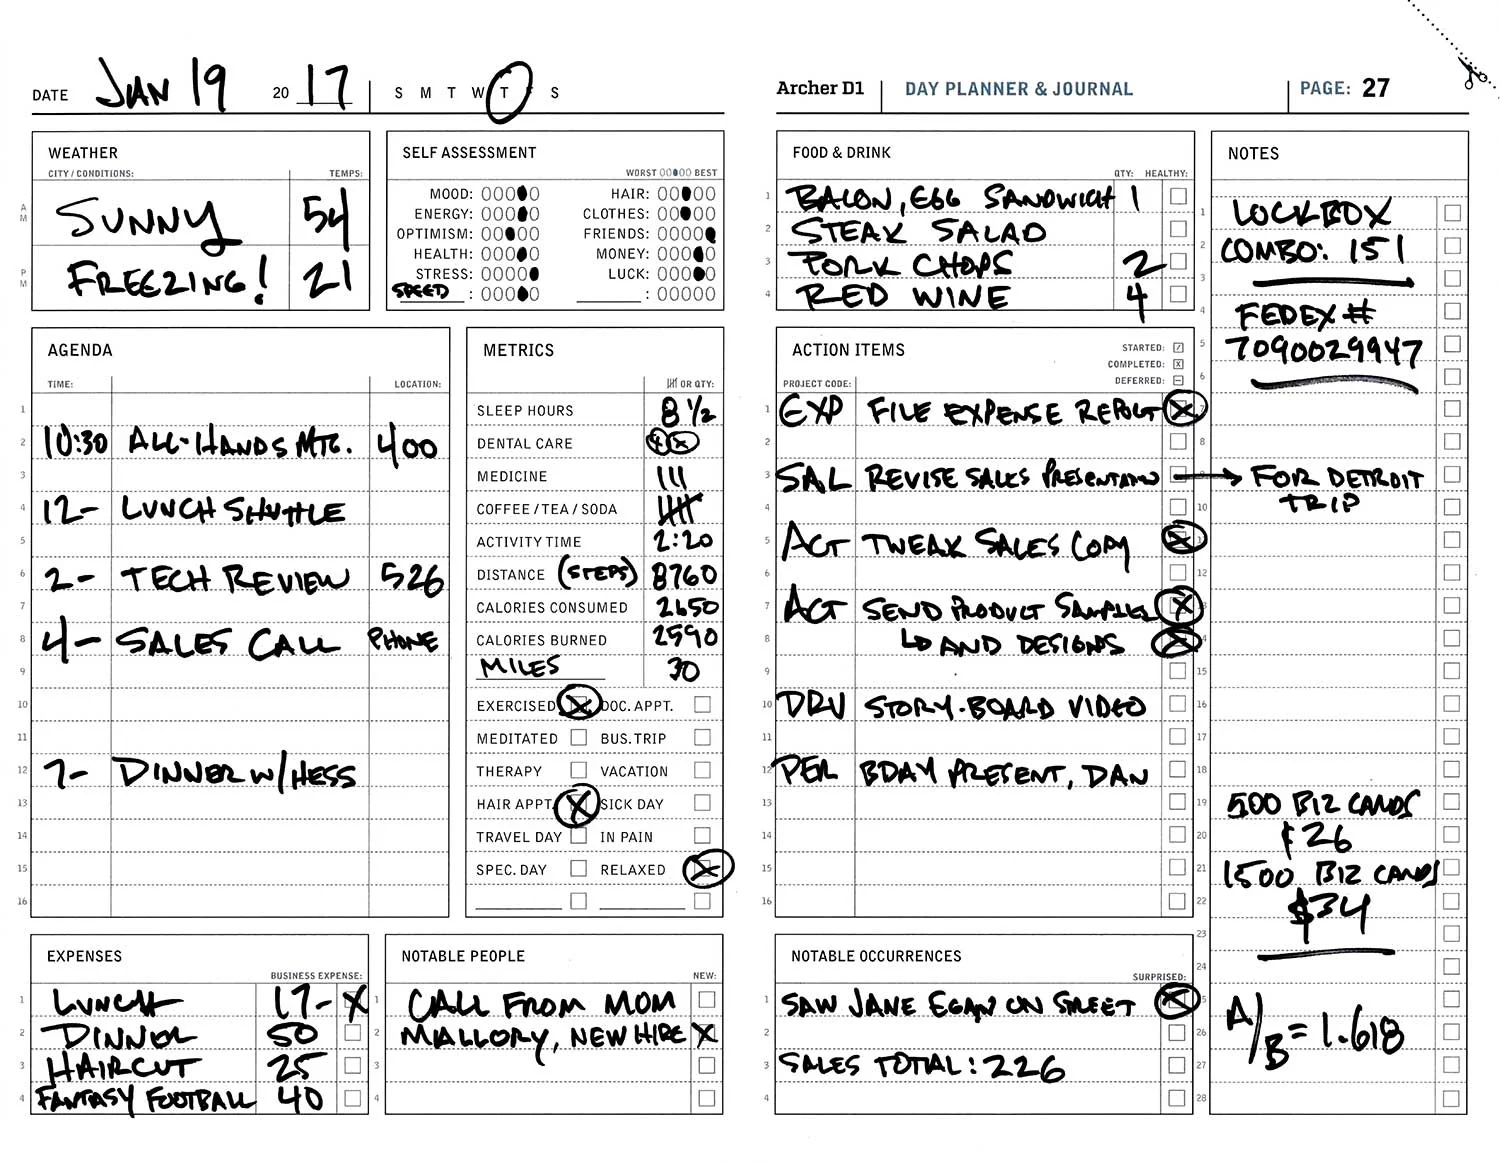 DATE JAN 19 20 17 S M T W T F S
WEATHER
CITY / CONDITIONS: TEMPS:
AM SUNNY 54
PM FREEZING! 21
SELF ASSESSMENT
WORST BEST
MOOD: HAIR:
ENERGY: CLOTHES:
OPTIMISM: FRIENDS:
HEALTH: MONEY:
STRESS: LUCK:
SPEED : :
AGENDA
TIME: LOCATION:
1
2 10:30 ALL-HANDS MTG. 400
3
4 12- LUNCH SHUTTLE
5
6 2- TECH REVIEW 526
7
8 4- SALES CALL PHONE
9
10
11
12 7- DINNER W/HESS
13
14
15
16
METRICS
OR QTY:
SLEEP HOURS 8 1/2
DENTAL CARE
MEDICINE III
COFFEE / TEA / SODA
ACTIVITY TIME 2:20
DISTANCE (STEPS) 8760
CALORIES CONSUMED 2650
CALORIES BURNED 2590
MILES 30
EXERCISED X DOC. APPT.
MEDITATED BUS. TRIP
THERAPY VACATION
HAIR APPT. X SICK DAY
TRAVEL DAY IN PAIN
SPEC. DAY RELAXED X
EXPENSES
BUSINESS EXPENSE:
1 LUNCH 17- X
2 DINNER 50
3 HAIRCUT 25
4 FANTASY FOOTBALL 40
NOTABLE PEOPLE
NEW:
1 CALL FROM MOM
2 MALLORY, NEW HIRE X
3
4
Archer D1 DAY PLANNER & JOURNAL PAGE: 27
FOOD & DRINK
QTY: HEALTHY:
1 BACON, EGG SANDWICH 1
2 STEAK SALAD
3 PORK CHOPS 2
4 RED WINE 4
ACTION ITEMS
STARTED:
COMPLETED:
DEFERRED:
PROJECT CODE:
1 EXP FILE EXPENSE REPORT X
2
3 SAL REVISE SALES PRESENTATION
4
5 ACT TWEAK SALES COPY X
6
7 ACT SEND PRODUCT SAMPLES X
8 AND DESIGNS X
9
10 DRV STORY-BOARD VIDEO
11
12 PER BDAY PRESENT, DAN
13
14
15
16
NOTABLE OCCURRENCES
SURPRISED:
1 SAW JANE EGAN ON STREET X
2
3 SALES TOTAL: 226
4
NOTES
1 LOCKBOX
2 COMBO: 151
3
4 FEDEX #
5 7090029947
6
8
FOR DETROIT
10 TRIP
12
15
16
17
18
19 500 BIZ CARDS
20 $26
21 1500 BIZ CARDS
22 $34
23
24
26 A/B = 1.618
27
28